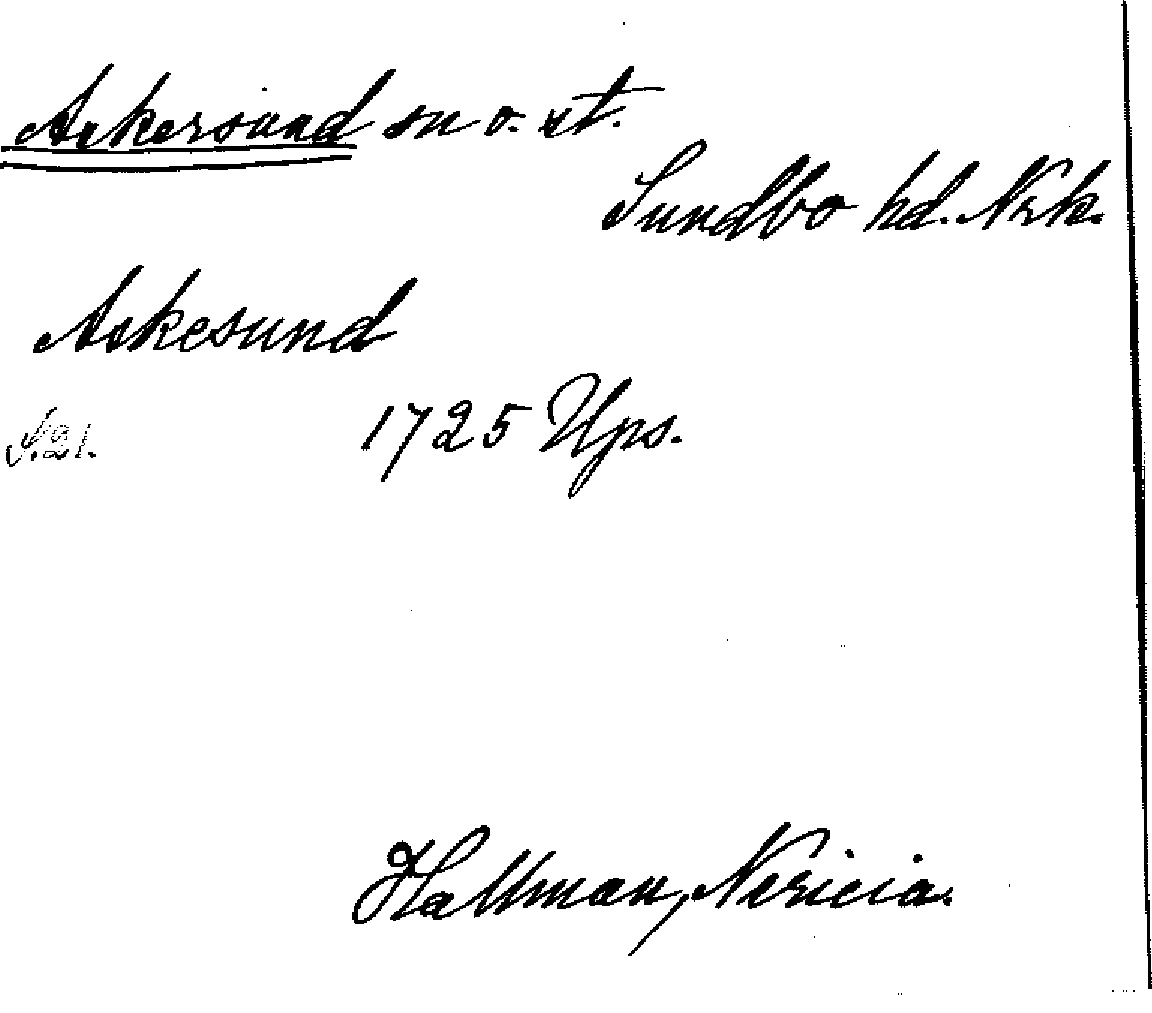 Askersund sn o. st.
Sundbo hd. Nrk.
Askesund
S.21. 1725 Ups.
Hallman, Nericia.